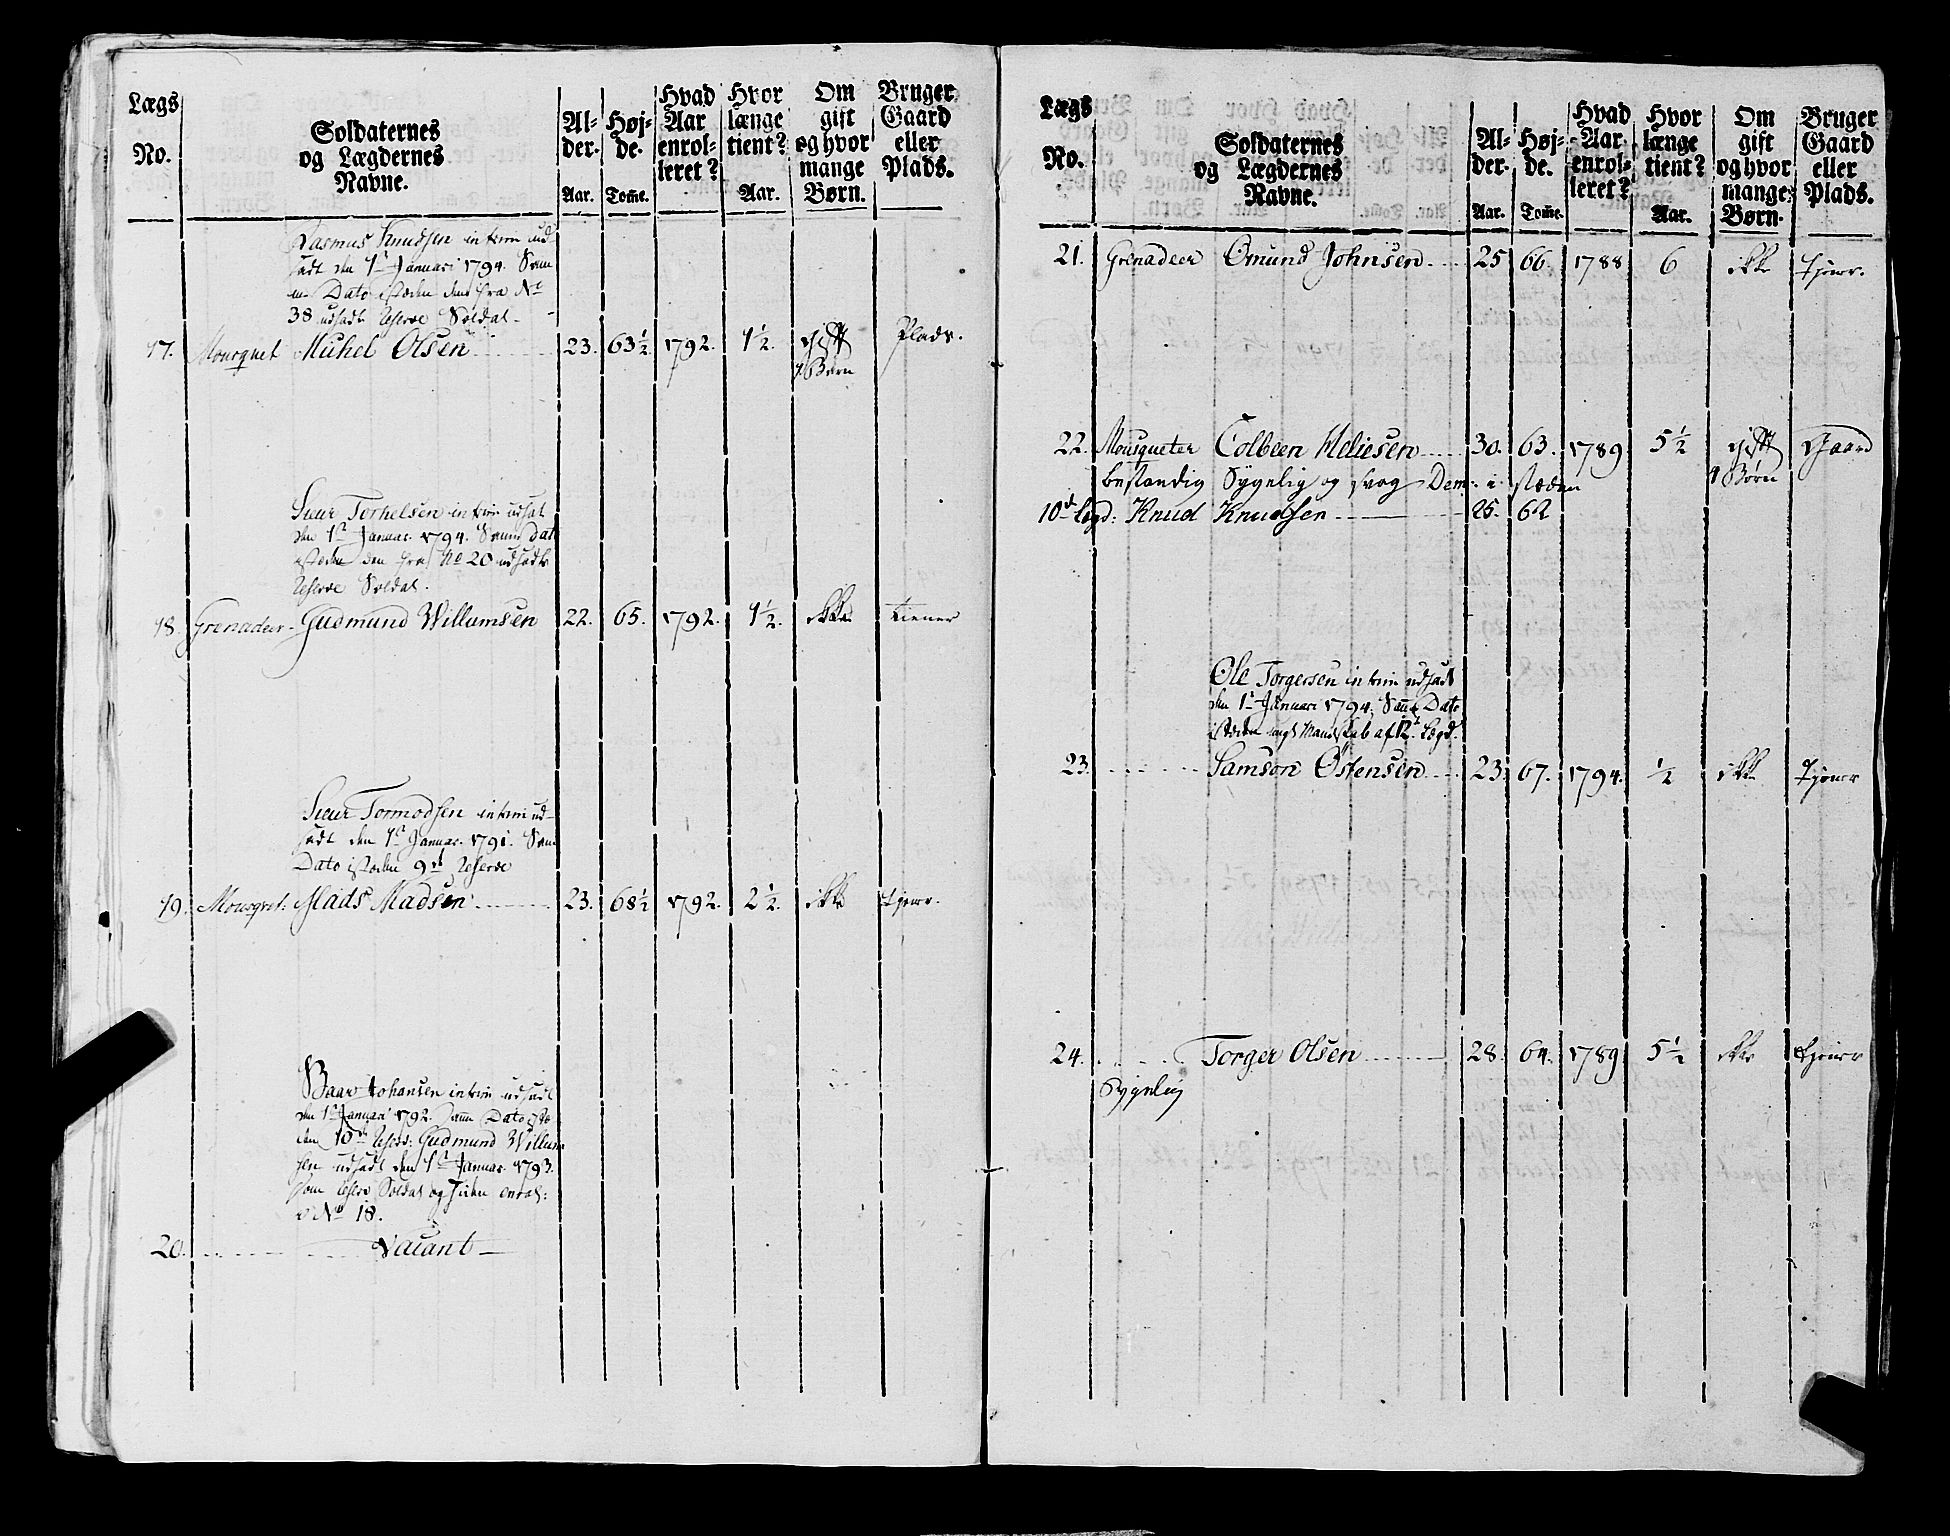 Lægs No. | Soldaternes og Lægdernes Navne. | Al-der. Aar. | Høj-de. Tomme. | Hvad Aar enrol-leret? | Hvor længe tient? Aar. | Om gift og hvor mange Børn. | Bruger Gaard eller Plads.
Rasmus Knudsen interim ud-
sadt den 1ste Januari 1794. Sam-
me Dato istæden den fra No
38 udsadt Reserve Soldat
17. Mousquet Michel Olsen 23. 63 1/2 1792. 1 1/2. gifft 1 Børn Plads.
Siur Torkelsen interim udsat
den 1ste Januar. 1794. Samme Dat
istæden den fra No 20 udsadte
Reserve Soldat.
18. Grenadeer Gudmund Willumsen 22. 65. 1792. 1 1/2. ikke tiener
Siur Tormodsen interim ud-
sadt den 1ste Januar. 1791. Sam
Dato istæden 9de Reserve
19. Mousqvet: Mads Madsen 23. 68 1/2 1792. 2 1/2. ikke tjener.
Baar Johansen interim udsadt
den 1ste Januari 1792. samme Dato istæ
den 10de Reserv: Gudmund Willum
sen udsadt den 1ste Januar. 1793.
som Reserve Soldat og siden enrol:
No 18.
20. Vacant
Lægs No. | Soldaternes og Lægdernes Navne. | Al-der. Aar. | Høj-de. Tomme. | Hvad Aar enrol-leret? | Hvor længe tient? Aar. | Om gift og hvor mange Børn. | Bruger Gaard eller Plads.
21. Grenadeer Omund Johnsen 25 66. 1788 6 ikke tjener.
22. Mousqueter Colbeen Meliesen 30. 63. 1789 5 1/2 gifft 1 Børn Gaard
bestandig Sygelig og svag Dem: i stæden
10de Legd: Knud Knudsen 25. 62
Ole Torgersen interim udsadt
den 1ste Januari 1794, Samme Dato
istæden lagt Mandskab af 12te Lægd.
23. Samson Østensen 23. 67. 1794. 1/2 ikke tjener
24. Torger Olsen 28. 64. 1789 5 1/2 ikke tjener
Sygelig